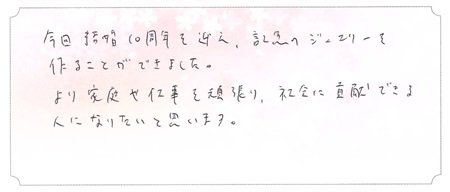 今回結婚10周年を迎え、記念のジュエリーを
作ることができました。
より家庭や仕事を頑張り、社会に貢献できる
人になりたいと思います。